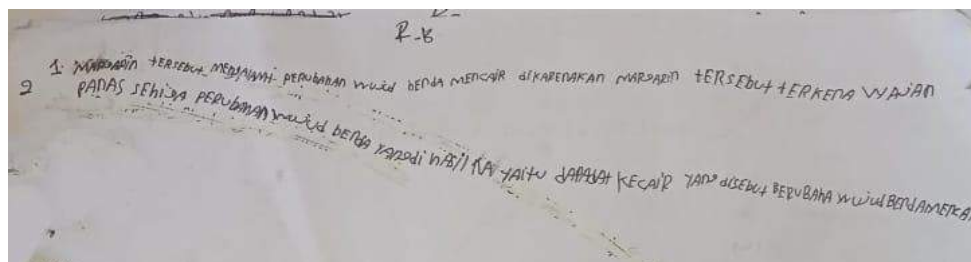 R-B
1. MARGARin tERSEbut MENGALAMi PERUBAHAN wujud bENDA MENCAIR diKARENAKAN MARGARin tERSEbut tERKENA WAJAN
2 PANAS SEhiGA PERUBAHAN wujud bENDA YANGdi hASilKA YAitu dAPAdAt KECAIR YANG diSEbut BERUBAHA wujud BENDAMENCA